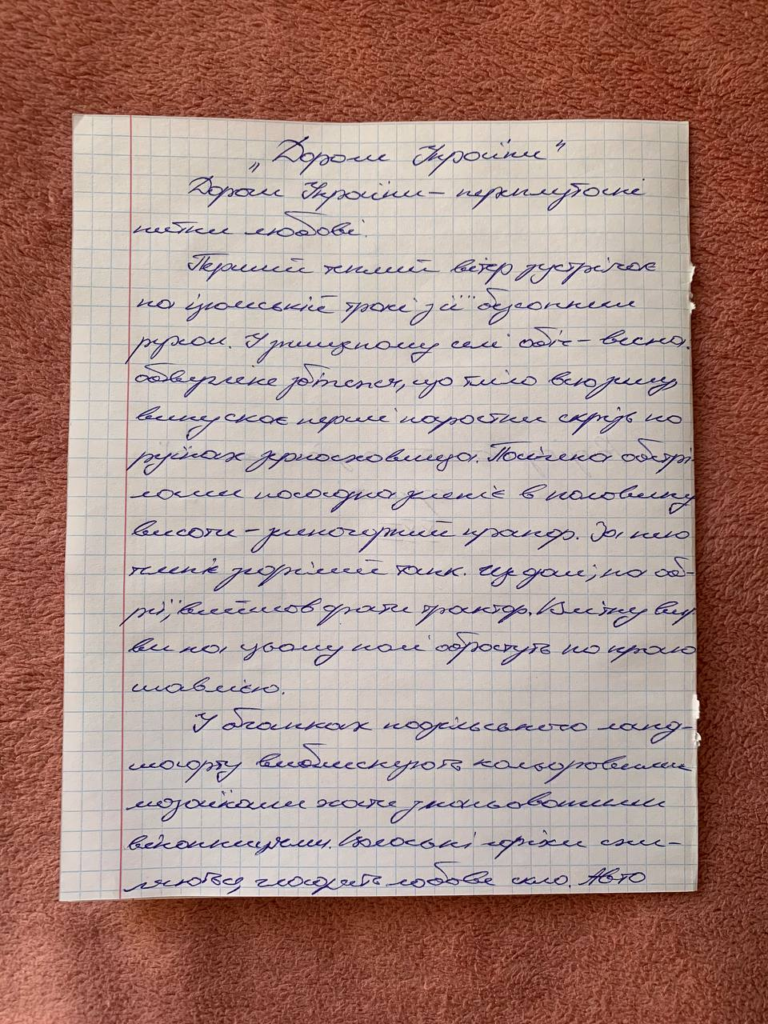 „Дороги України"
Дороги України – переплутані
нитки любові.
Перший теплий вітер зустрічає
на ізюмській трасі з її безсонним
рухом. У знищеному селі обіч – весна.
обвуглене збіжжя, що тліло всю зиму
випускає перші паростки скрізь на
руїнах зерносховища. Посічена обстрі-
лами посадка зеленіє в половину
висоти – зеленочорний прапор. За нею
тліє згорілий танк. Ще далі, на об-
рії, вийшов орати трактор. Влітку вир-
ви на цьому полі обростуть по краю
шавлією.
У бганках подільського ланд-
шафту виблискують кольоровими
мозаїками хати з мальованими
віконницями. Волоські горіхи схи-
ляються, гладять лобове скло. Авто